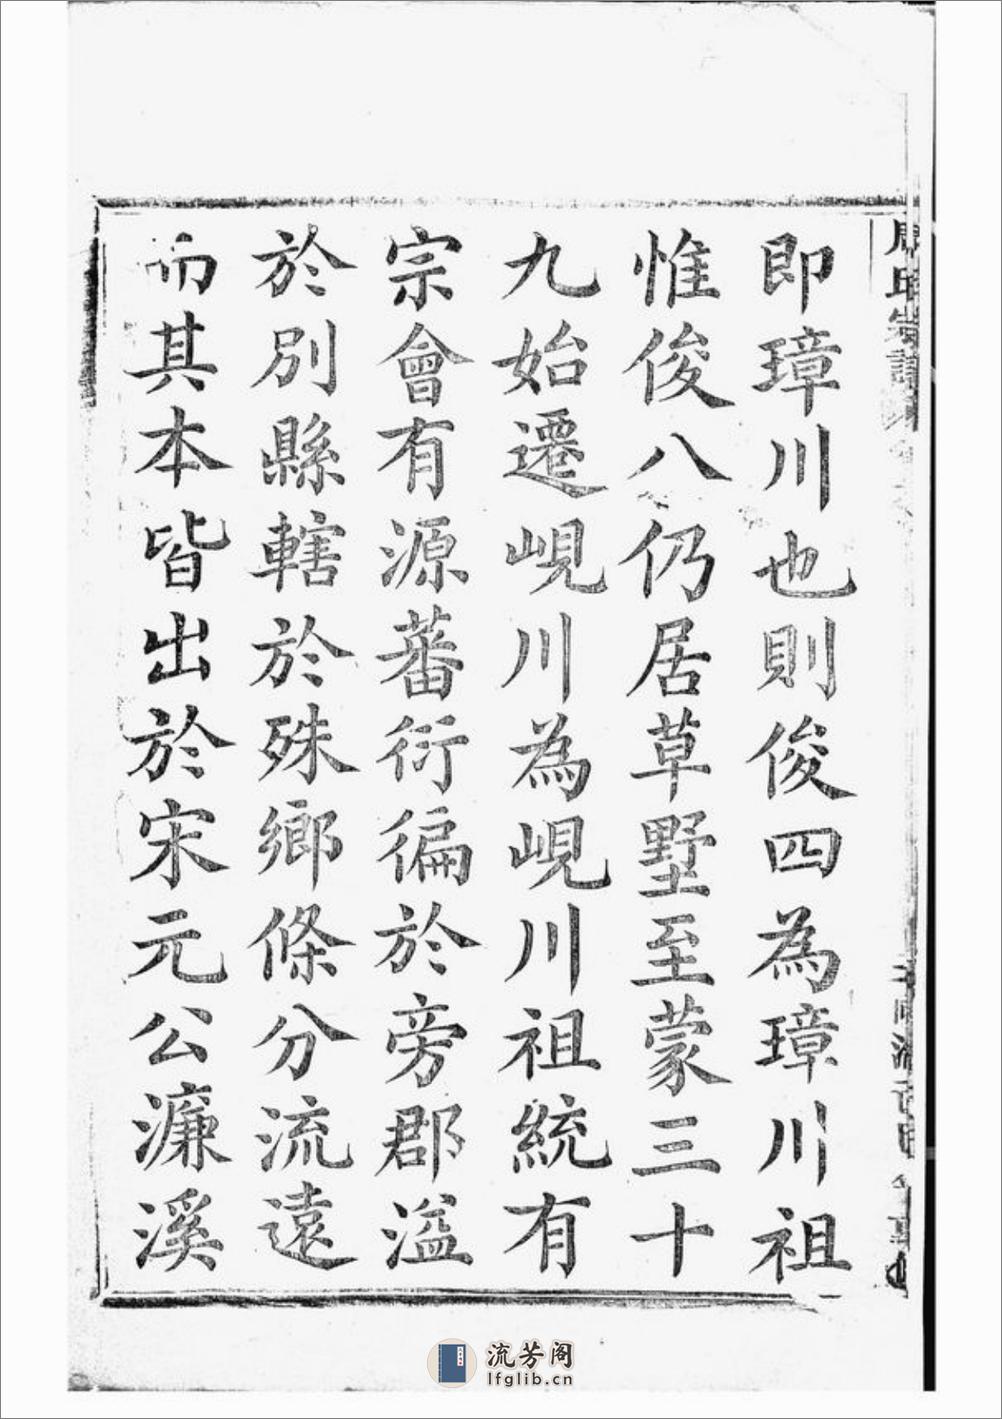 即璋川也則俊四為璋川祖
惟俊八仍居草墅至蒙三十
九始遷峴川為峴川祖統有
宗會有源蕃衍徧於旁郡溢
於別縣轄於殊鄉條分流遠
而其本皆出於宋元公濂溪
周氏宗譜
流芳阁
lfglib.cn